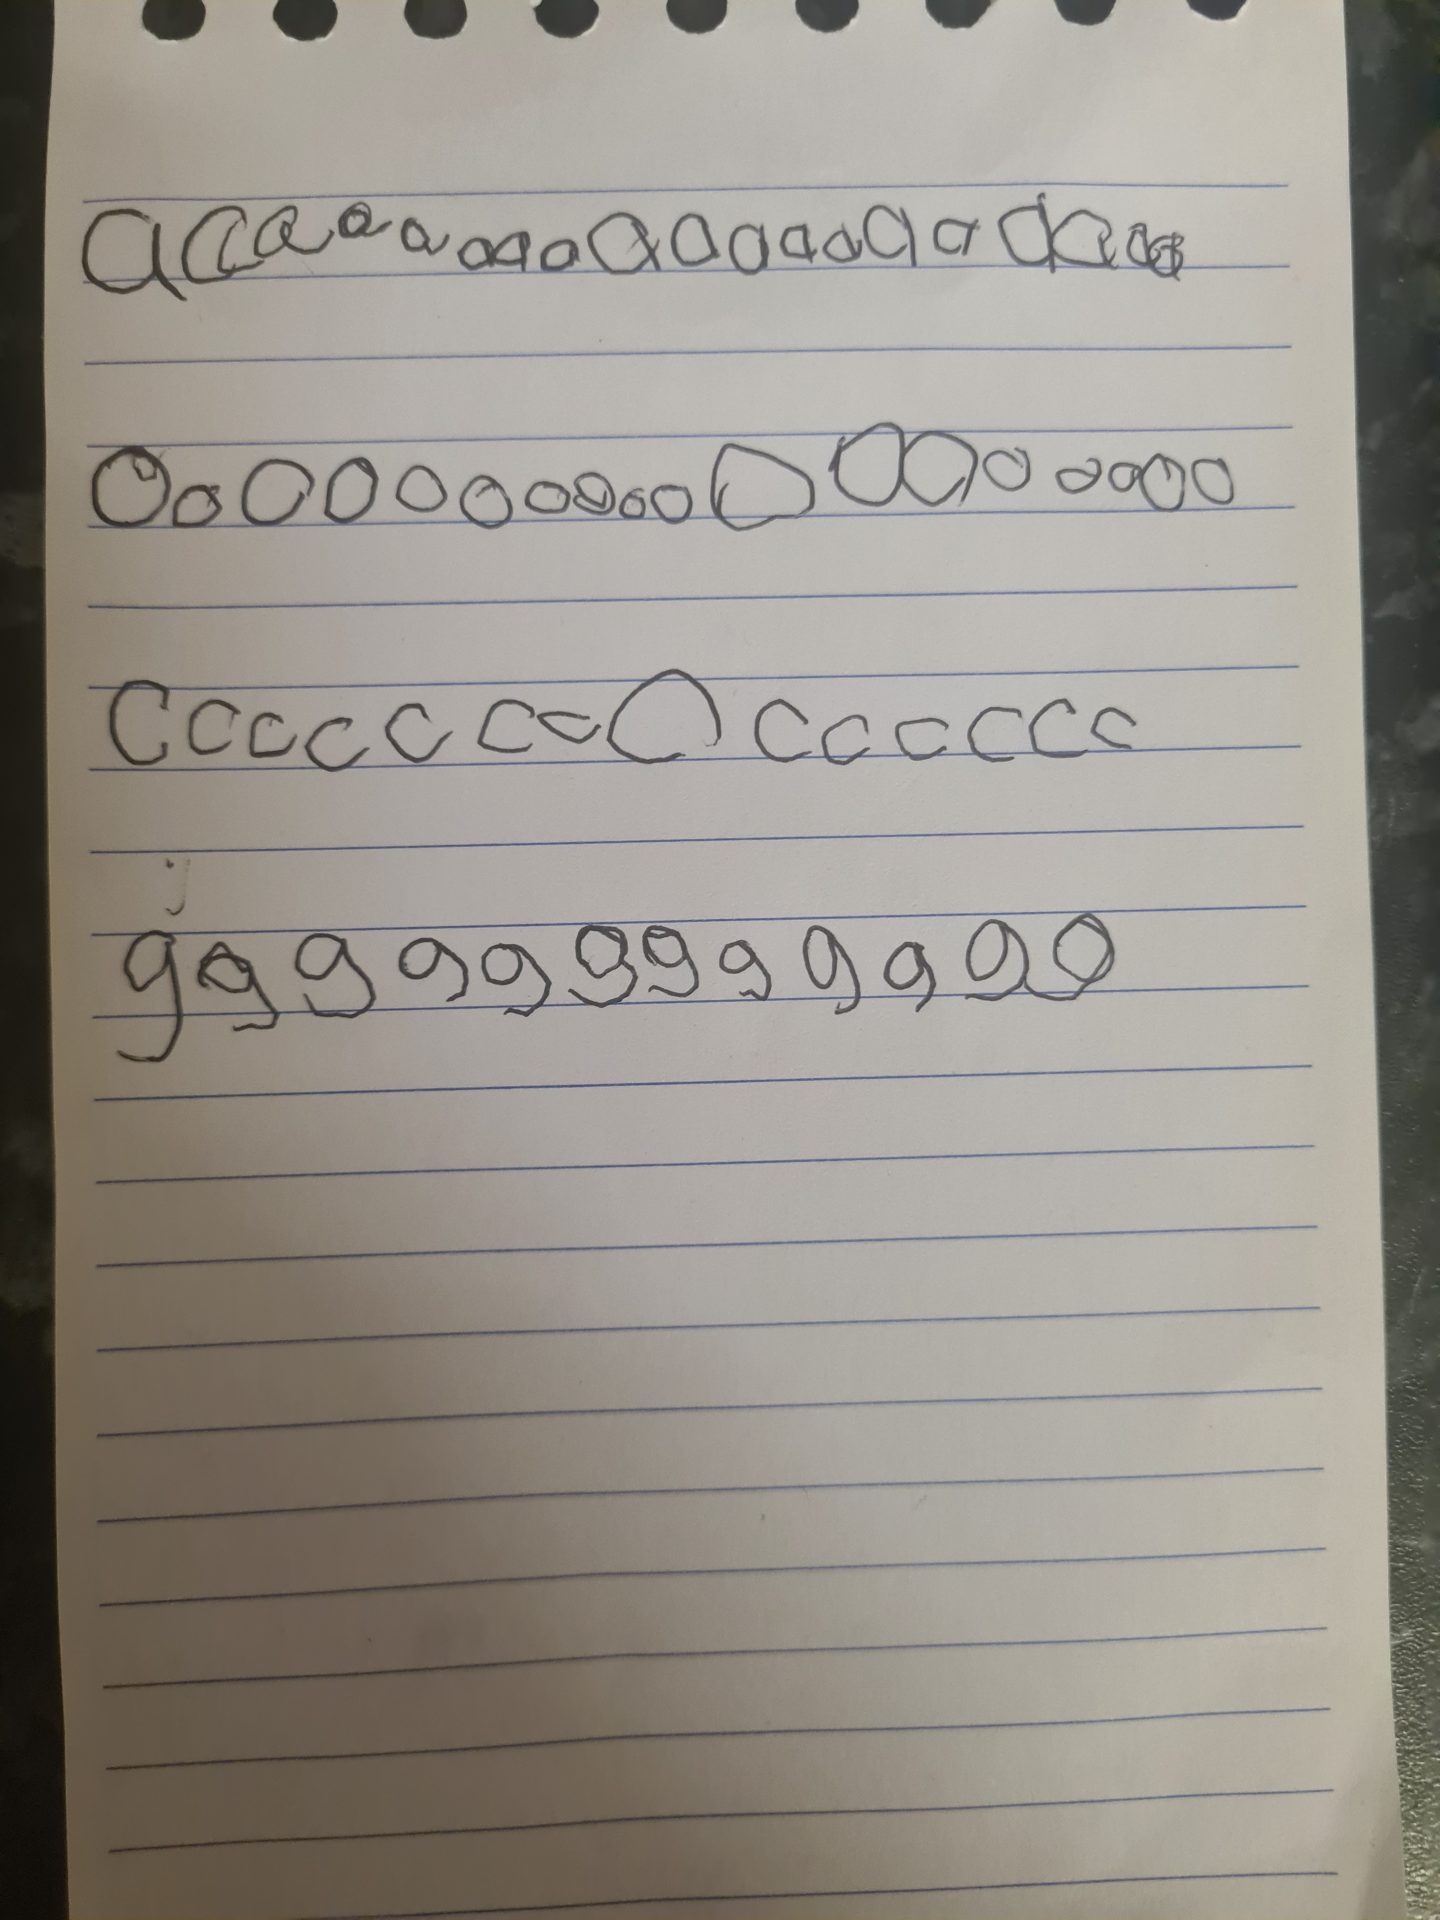 a a a a a a a a a a a a a a a a a a a a a
o o o o o o o o o o o o o o o o o o
c c c c c c c c c c c c c c
j
g g g g g g g g g g g g